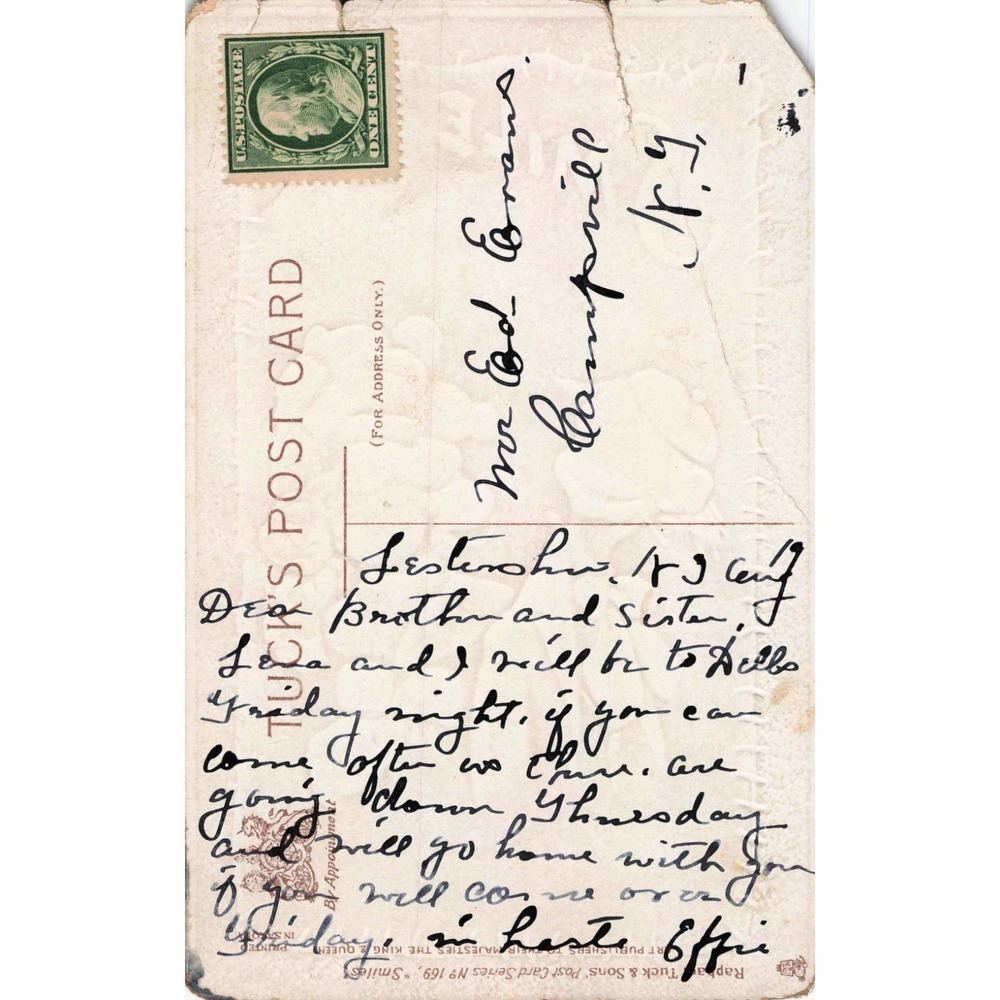 U.S. POSTAGE
ONE CENT
TUCK'S POST CARD
(FOR ADDRESS ONLY.)
Mr Ed Evans.
Campvill
N.Y
Lestershire, N Y Aug 19
Dear Brother and Sister,
Lena and I will be to Dells
Friday night. if you can
come after us there. are
going down Thursday
and will go home with you
if you will come over
Friday. in haste Effie
By Appointment
PRINTED
IN SAXONY
ART PUBLISHERS TO THEIR MAJESTIES THE KING & QUEEN
Raphael Tuck & Sons' Post Card Series No 169, "Smiles"